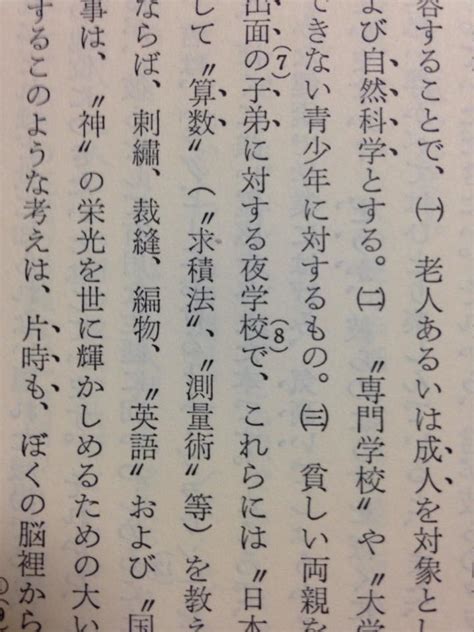 容することで、㈠　老人あるいは成人を対象とし
よび自然科学とする。㈡　〝専門学校〟や〝大学
できない青少年に対するもの。㈢　貧しい両親を
出面の子弟に対する夜学校で、これらには〝日本
(7) (8)
して〝算数〟（〝求積法〟、〝測量術〟等）を教え
ならば、刺繡、裁縫、編物、〝英語〟および〝国
事は、〝神〟の栄光を世に輝かしめるための大い
するこのような考えは、片時も、ぼくの脳裡から